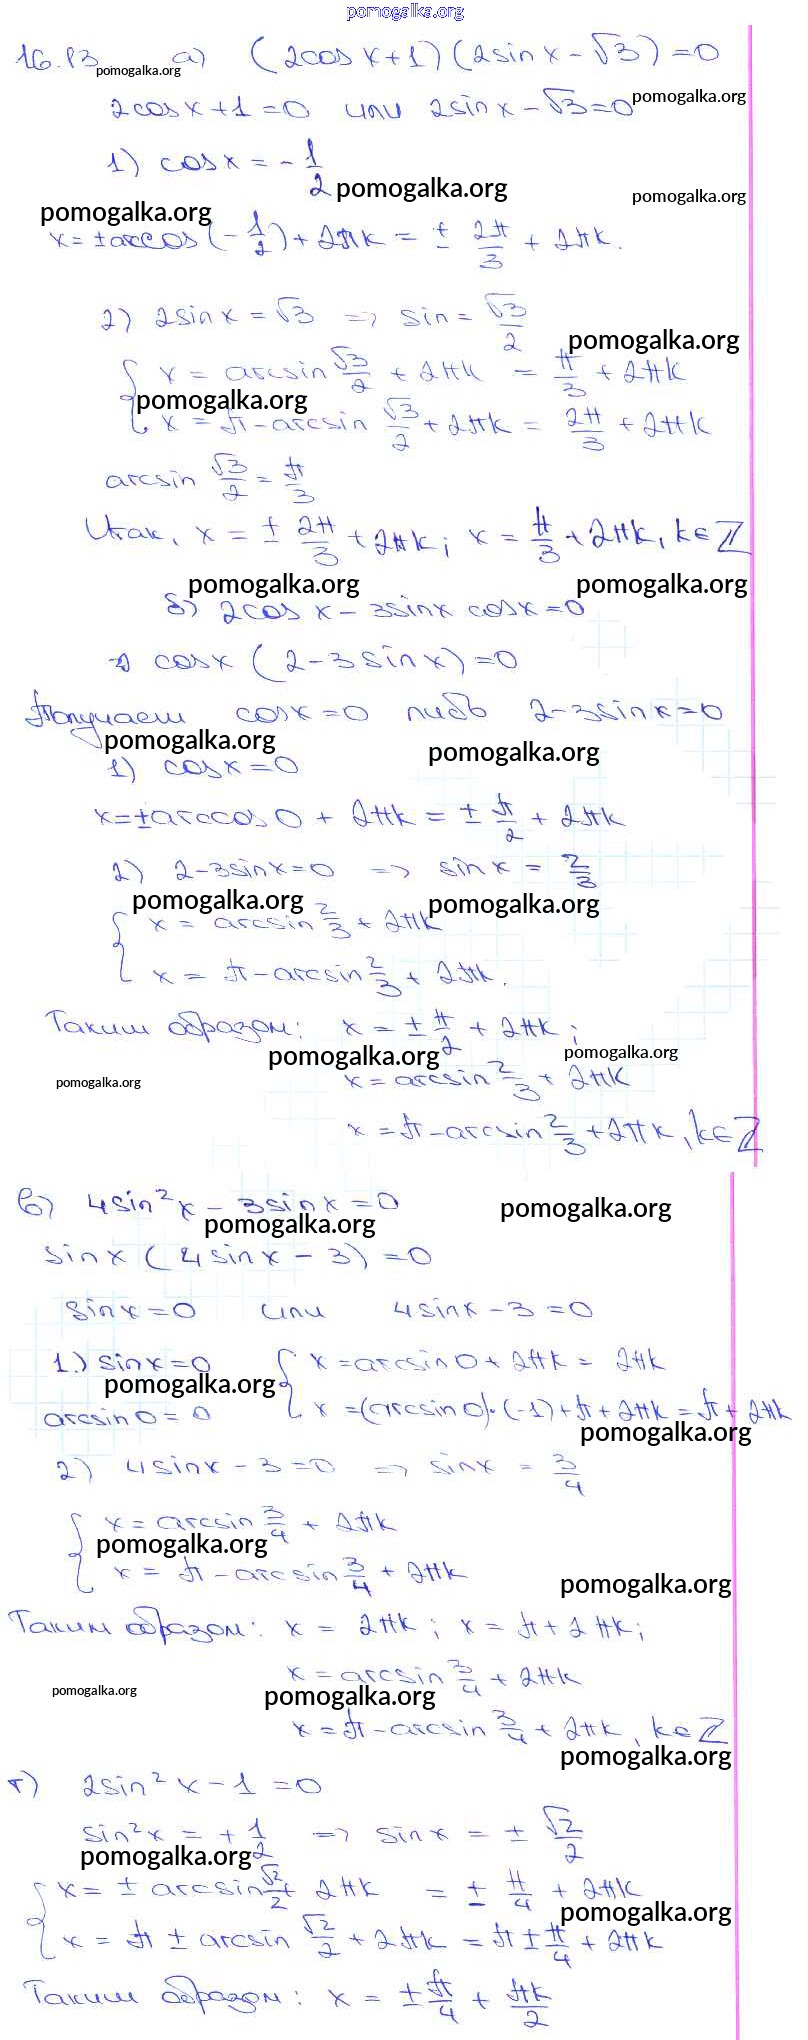 pomogalka.org
16.13 а) (2cos x+1)(2sin x - √3)=0
pomogalka.org
2cosx+1=0 или 2sinx-√3=0 pomogalka.org
1) cosx = -1/2
pomogalka.org pomogalka.org
pomogalka.org
x=±arccos(-1/2)+2πk = ± 2π/3 + 2πk.
2) 2sinx=√3 => sin = √3/2
pomogalka.org
{ x = arcsin √3/2 + 2πk = π/3 + 2πk
pomogalka.org
x = π-arcsin √3/2 + 2πk = 2π/3 + 2πk
arcsin √3/2 = π/3
Итак, x = ± 2π/3 + 2πk; x = π/3 + 2πk, k∈ℤ
pomogalka.org pomogalka.org
б) 2cos x - 3sinx cosx=0
cosx (2-3sinx)=0
Получаем cosx=0 либо 2-3sinx=0
pomogalka.org pomogalka.org
1) cosx=0
x=±arccos0 + 2πk = ± π/2 + 2πk
2) 2-3sinx=0 => sinx = 2/3
pomogalka.org pomogalka.org
{ x = arcsin 2/3 + 2πk
x = π-arcsin 2/3 + 2πk.
Таким образом: x = ± π/2 + 2πk;
pomogalka.org pomogalka.org
pomogalka.org
x=arcsin 2/3 + 2πk
x=π-arcsin 2/3 + 2πk, k∈ℤ
в) 4sin²x - 3sinx=0 pomogalka.org
pomogalka.org
sinx (4sinx - 3)=0
sinx=0 или 4sinx-3=0
1.) sinx=0 { x=arcsin0+2πk = 2πk
pomogalka.org
arcsin0=0 x=(arcsin0)·(-1)+π+2πk=π+2πk
pomogalka.org
2) 4sinx-3=0 => sinx = 3/4
{ x=arcsin 3/4 + 2πk
pomogalka.org
x = π-arcsin 3/4 + 2πk
pomogalka.org
Таким образом: x = 2πk; x = π+2πk;
x=arcsin 3/4 + 2πk
pomogalka.org pomogalka.org
x=π-arcsin 3/4 + 2πk, k∈ℤ
pomogalka.org
г) 2sin²x-1=0
sin²x = + 1/2 => sinx = ± √2/2
pomogalka.org
{ x= ± arcsin √2/2 + 2πk = ± π/4 + 2πk
pomogalka.org
x= π ± arcsin √2/2 + 2πk = π ± π/4 + 2πk
Таким образом: x = ± π/4 + πk/2